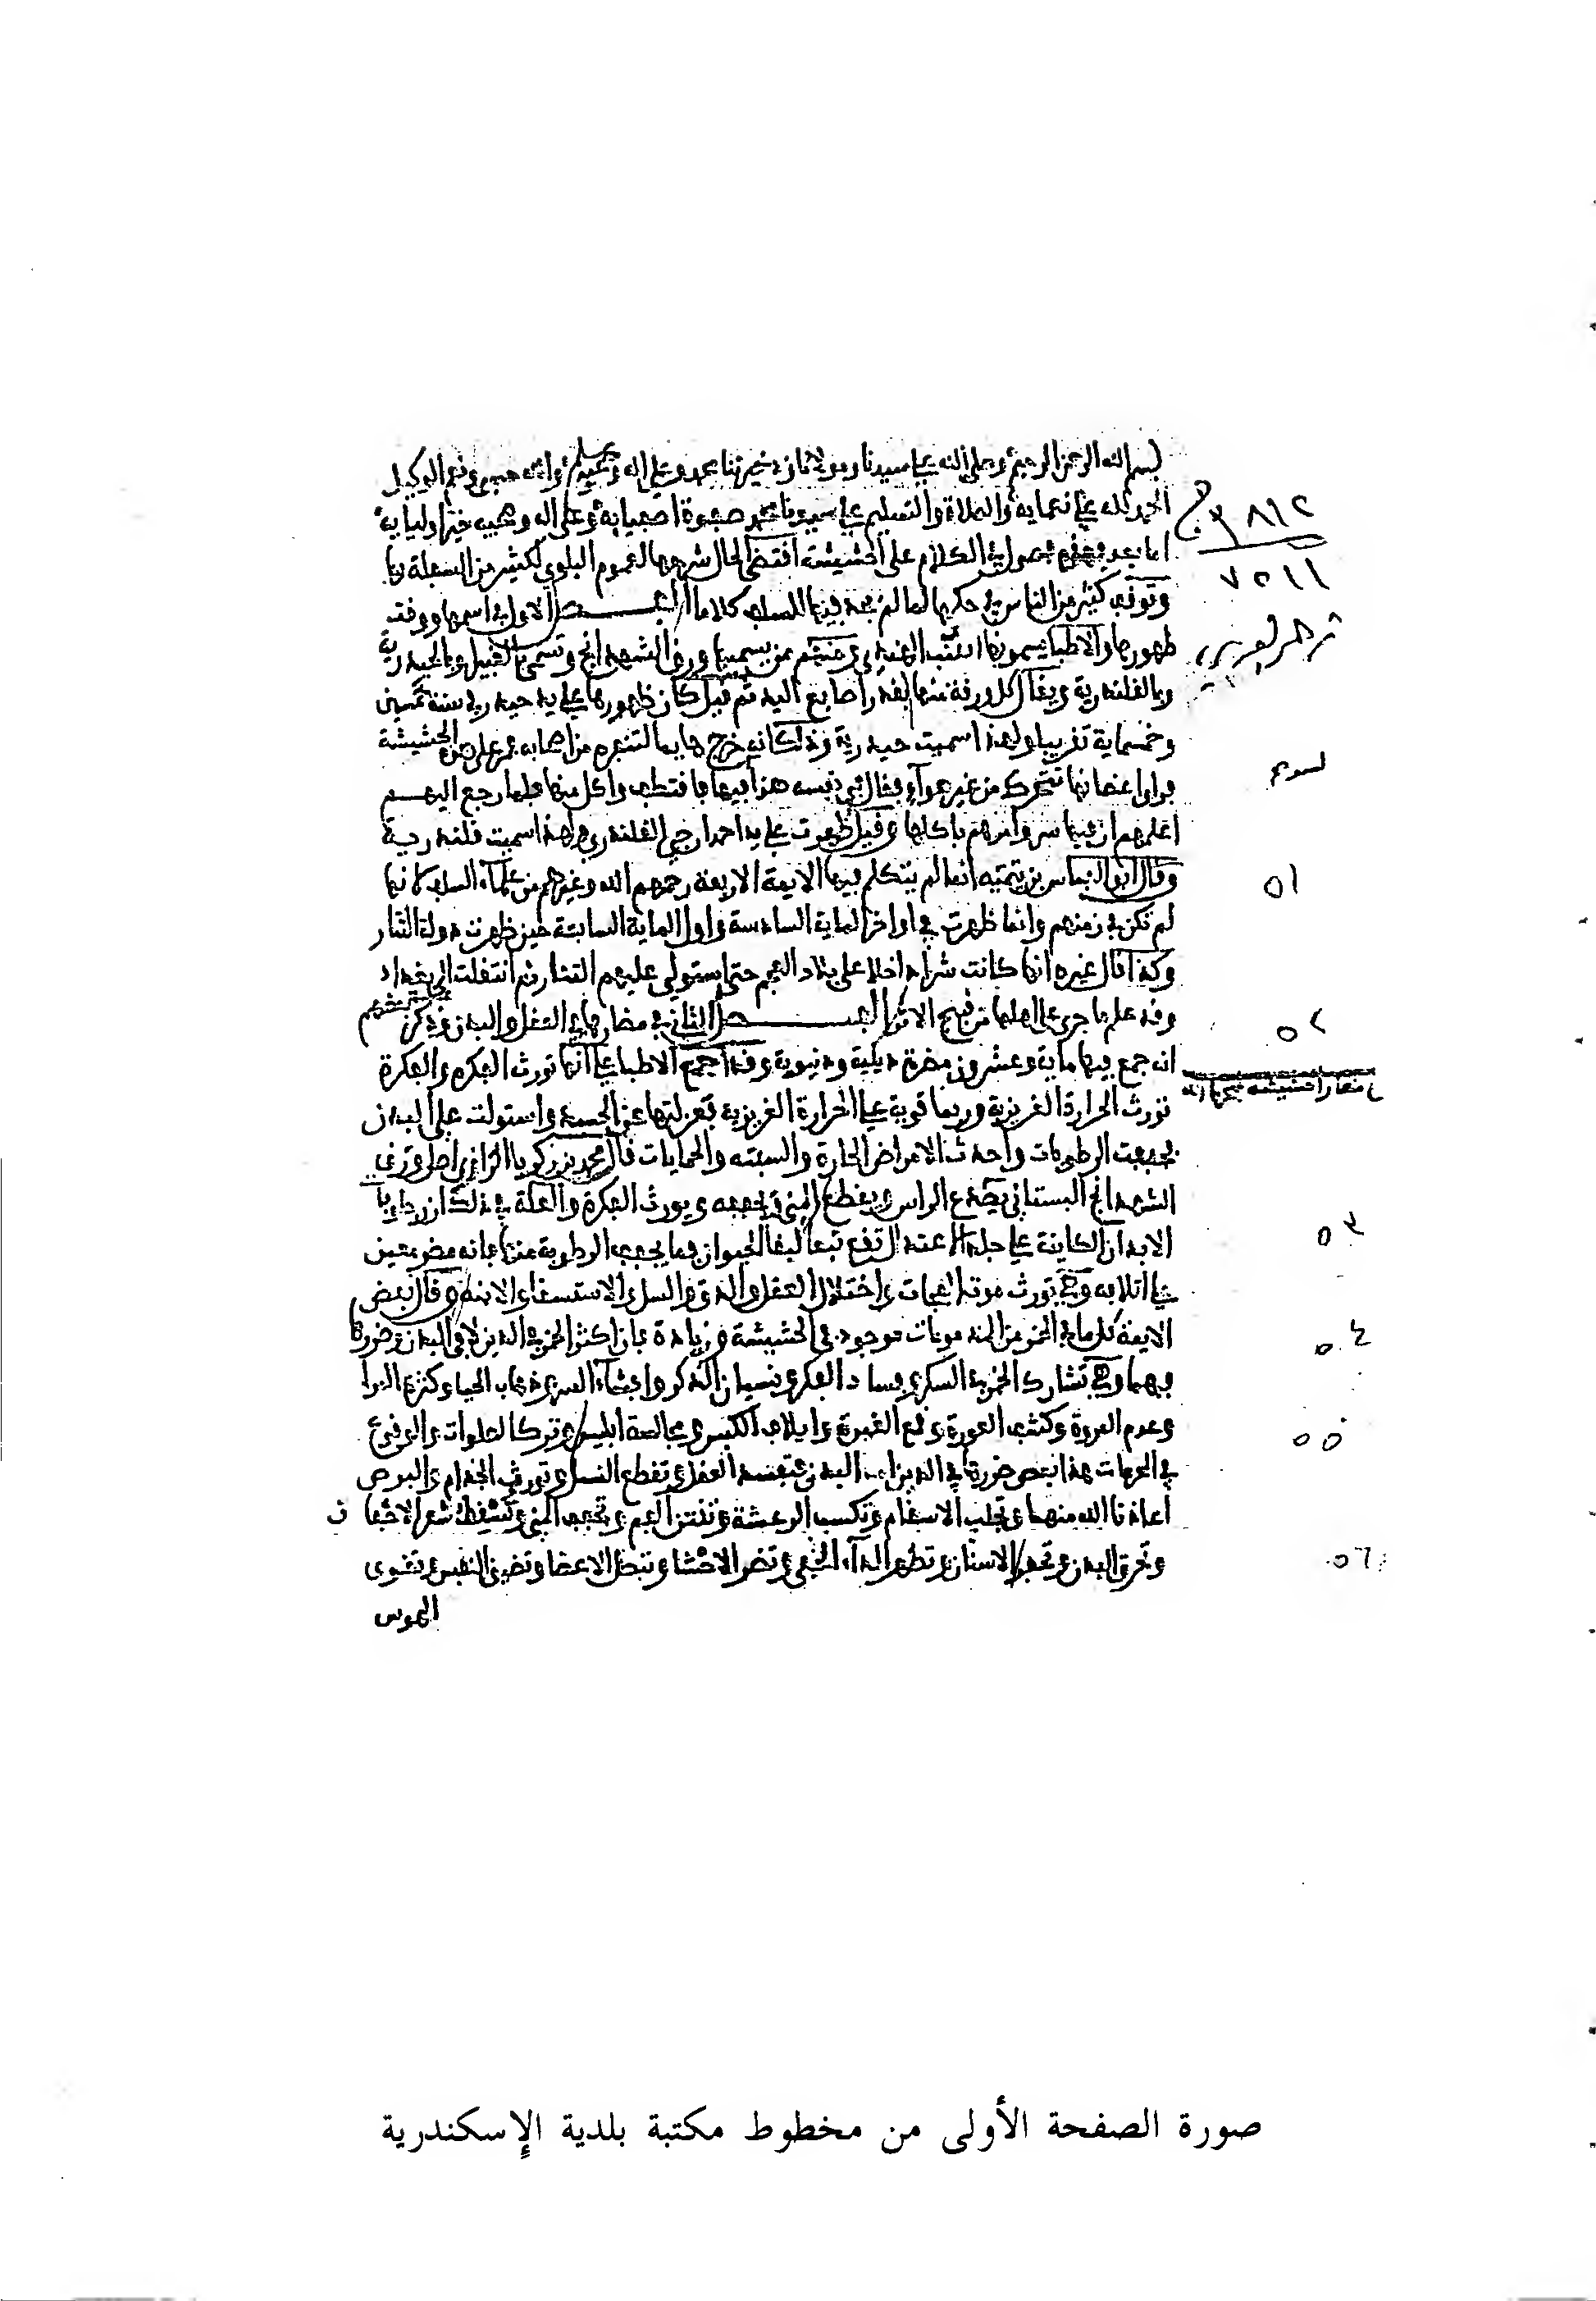 بسم الله الرحمن الرحيم وصلى الله على سيدنا ومولانا محمد وعلى اله وسلم والله حسبي ونعم الوكيل
الحمد لله على نعمايه والصلاة والتسليم على سيدنا محمد صفوة اصفيايه وعلى اله وصحبه خير اوليايه
اما بعد فهذه فصول في الكلام على الحشيشة اقتضى الحال شرحها لعموم البلوى لكثير من السفلة بها
وتوقف كثير من الناس في حكمها لما لم يجد فيها للسلف كلاما الفصل الاول في اسمها ووقت
ظهورها والاطبا يسمونها القنب الهندي ومنهم من يسميها ورق الشهدانج وتسمى بالغبيرا وبالحيدرية
وبالقلندرية ويقال كل ورقة منها بقدر اصابع اليد ثم قيل كان ظهورها على يد حيدر في سنة خمسين
وخمسماية تقريبا ولهذا سميت حيدرية وذلك انه خرج هايما لتنفره من اصحابه فمر على هذه الحشيشة
فراى اغصانها تتحرك من غير هواء فقال في نفسه هذا فيها فاقتطف واكل منها فلما رجع اليهم
اعلمهم ان فيها سر وامرهم باكلها وقيل ظهرت على يد احمد القلندري ولهذا سميت قلندرية
وقال ابو العباس بن تيمية انما لم يتكلم فيها الايمة الاربعة رحمهم الله وغيرهم من علماء السلف لانها
لم تكن في زمنهم وانما ظهرت في اواخر الماية السادسة واول الماية السابعة حين ظهرت دولة التتار
وكذا قال غيره انها كانت شرا داخلا على بلاد العجم حتى استولى عليهم التتار ثم انتقلت الى بغداد
وقد علم ما جرى على اهلها من قبيح الاثر الفصل الثاني في مضارها في العقل والبدن وذكر بعضهم
انه جمع فيها ماية وعشرون مضرة دينية ودنيوية وقد اجمع الاطبا على انها تورث الفكرة والفكرة
تورث الحرارة الغريزية وربما قوية على الحرارة الغريزية فعزلتها عن الجسد واستولت على البدن
فجففت الرطوبات واحدث الامراض الحارة والحمايات قال محمد بن زكريا الرازي اكل ورق
الشهدانج البستاني يصدع الراس ويقطع المني ويجففه ويورث الفكرة والعلة في ذلك ان
الابدان الكاينة على الاعتدال تقع تبعا لبقا الحيوان فما يجفف الرطوبة منها فانه مضر معين
على اتلافه وهي تورث موتة الفجاة واختلال العقل والدق والسل والاستسقا والابنة وقال بعض
الايمة كل ما في الخمر من المذمومات موجود في الحشيشة وزيادة فان اكثر الخمر في الدين لا في البدن وضررها
فيهما وهي تشارك الخمر في السكر وفساد الفكر ونسيان الذكر وافشاء السر وذهاب الحيا وكثرة المرا
وعدم المروة وكشف العورة وقمع الغيرة واتلاف الكيس ومجالسة ابليس وترك الصلوات والوقوع
في المحرمات هذا بعض ضررها في الدين اما البدن فتفسد العقل وتقطع النسل وتورث الجذام والبرص
اعاذنا الله منها وتجلب الاسقام وتكسب الرعشة وتنتن الفم وتجفف المني وتسقط شعر الاجفان
وتحرق البدن وتحفر الاسنان وتظهر الداء الخفي وتضر الاحشا وتبطل الاعضا وتضيق النفس وتقوى
الهوس
٨١٢
٧٥١١
٥١
٥٢
٥٣
٥٤
٥٥
٥٦
صورة الصفحة الأولى من مخطوط مكتبة بلدية الإسكندرية